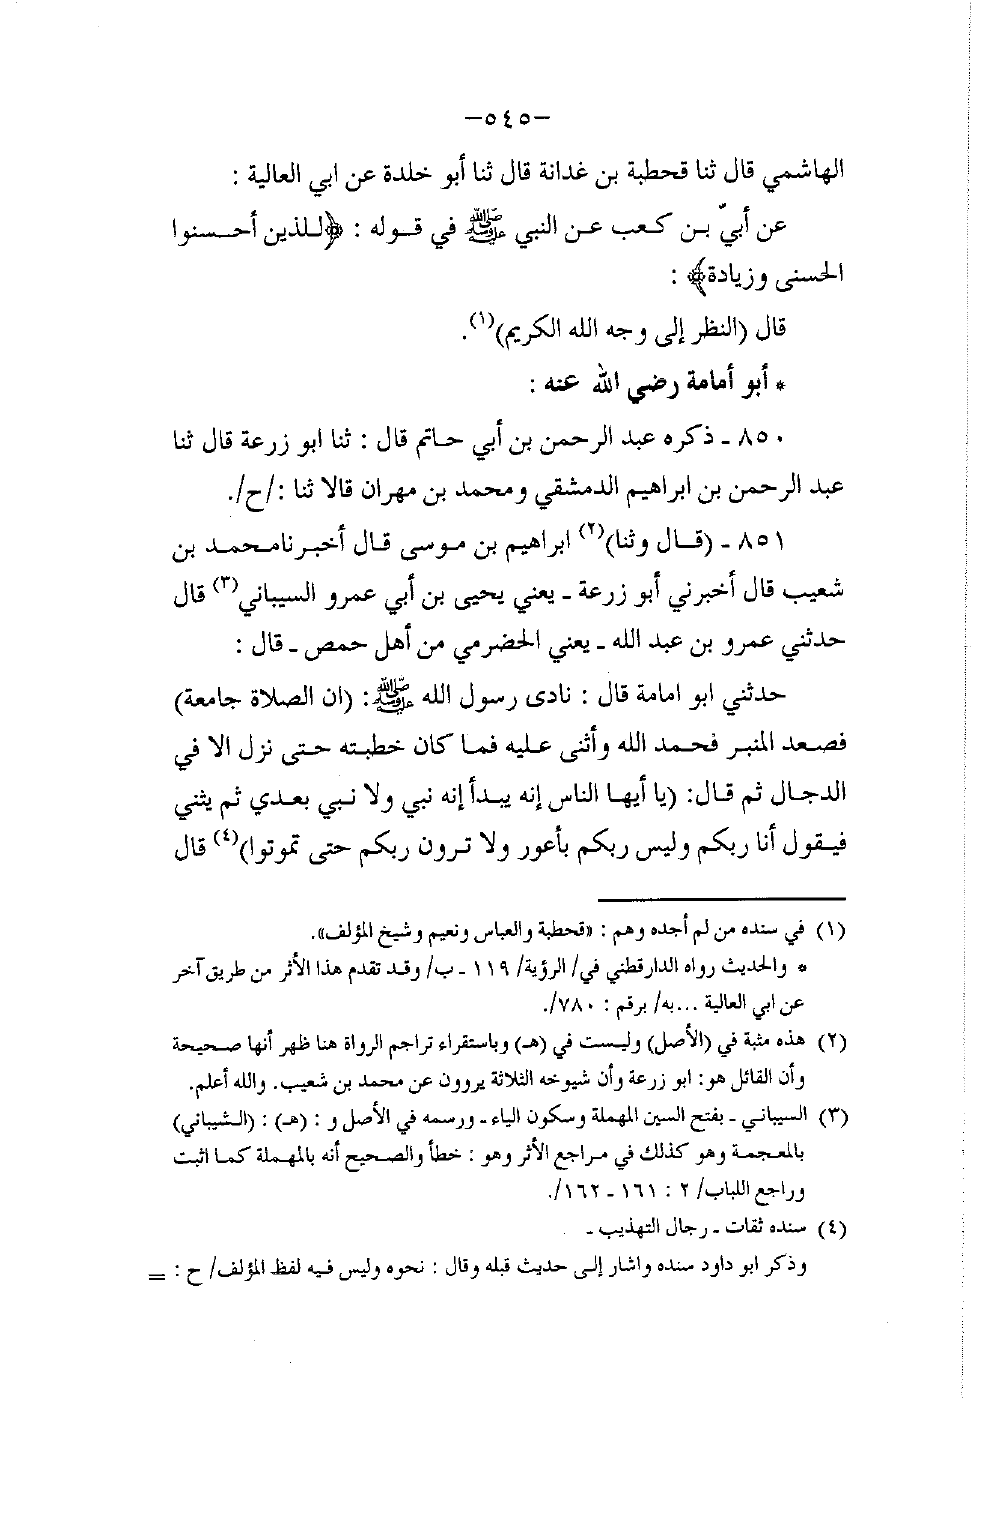 -٥٤٥-
الهاشمي قال ثنا قحطبة بن غدانة قال ثنا أبو خلدة عن ابي العالية :
عن أبيّ بـن كـعب عـن النبي ﷺ في قـوله : ﴿لـلذين أحـسنوا
الحسنى وزيادة﴾ :
قال (النظر إلى وجه الله الكريم)(١).
* أبو أمامة رضي الله عنه :
٨٥٠ ـ ذكره عبد الرحمن بن أبي حـاتم قال : ثنا ابو زرعة قال ثنا
عبد الرحمن بن ابراهيم الدمشقي ومحمد بن مهران قالا ثنا :/ح/.
٨٥١ ـ (قـال وثنا)(٢) ابراهيم بن مـوسى قـال أخبـرنامـحمـد بن
شعيب قال أخبرني أبو زرعة ـ يعني يحيى بن أبي عمرو السيباني(٣) قال
حدثني عمرو بن عبد الله ـ يعني الحضرمي من أهل حمص ـ قال :
حدثني ابو امامة قال : نادى رسول الله ﷺ: (ان الصلاة جامعة)
فصعد المنبـر فحمـد الله وأثنى عليه فمـا كان خطبته حـتى نزل الا في
الدجـال ثم قـال: (يا أيهـا الناس إنه يبـدأ إنه نبي ولا نـبي بعدي ثم يثني
فيـقول أنا ربكم وليس ربكم بأعور ولا تـرون ربكم حتى تموتوا)(٤) قال
(١) في سنده من لم أجده وهم : «قحطبة والعباس ونعيم وشيخ المؤلف».
* والحديث رواه الدارقطني في/ الرؤية/ ١١٩ ـ ب/ وقـد تقدم هذا الأثر من طريق آخر
عن ابي العالية ...به/ برقم : ٧٨٠/.
(٢) هذه مثبة في (الأصل) وليست في (هـ) وباستقراء تراجم الرواة هنا ظهر أنها صـحيحة
وأن القائل هو: ابو زرعة وأن شيوخه الثلاثة يروون عن محمد بن شعيب. والله أعلم.
(٣) السيبانـي ـ بفتح السين المهملة وسكون الياء ـ ورسمه في الأصل و : (هـ) : (الـشيباني)
بالمعـجمة وهو كذلك في مـراجع الأثر وهو : خطأ والصـحيح أنه بالمهـملة كمـا اثبت
وراجع اللباب/ ٢ : ١٦١ ـ ١٦٢/.
(٤) سنده ثقات ـ رجال التهذيب ـ
وذكر ابو داود سنده واشار إلـى حديث قبله وقال : نحوه وليس فيه لفظ المؤلف/ ح : =